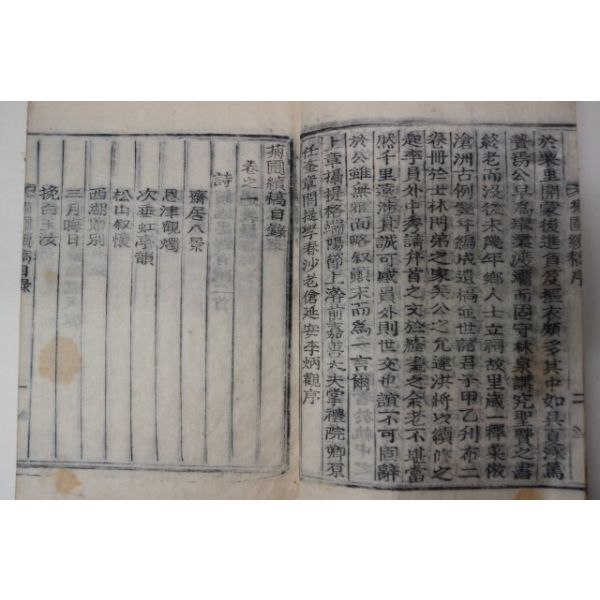 菊圃續稿序
於梁里開蒙後進負及摳衣頗多其中如具夏泳篤
贊務公早爲舉業渡灞而固守林泉講究聖賢之書
終老而沒後未幾年鄕人士立祠故里歲一釋菜倣
滄洲古例翌年編成遺稿並世諸君子甲乙刊布二
卷冊於士林門弟之家矣公之允達洪將以續修之
起李員外中秀請弁首之文於余老不堪當
然千里遠涉其誠可感員外則世交也讀不可固辭
於公雖無雅面略叙顚末而爲一言爾
上章攝提格端陽節上澣前嘉善大夫掌禮院卿原
任奎章閣提學春沙老傖延安李炳觀序
菊圃續稿目錄
卷之一
詩
齋居八景
恩津觀燭
次垂虹亭韻
松山叙懷
西湖贈別
三月晦日
挽白玉汝
菊圃續稿目錄